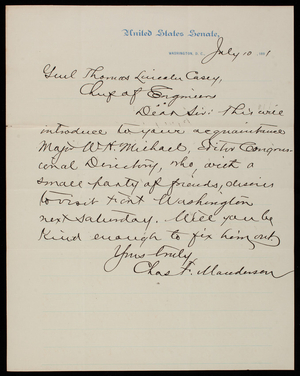 United States Senate,
WASHINGTON, D.C., July 10 1891
Genl Thomas Lincoln Casey,
Chief of Engineers
Dear Sir: This will
introduce to your acquaintance
Major W. H. Michael, Editor Congres-
sional Directory, who, with a
small party of friends, desires
to visit Fort Washington
next Saturday. Will you be
kind enough to fix him out
Yours truly
Chas F. Manderson